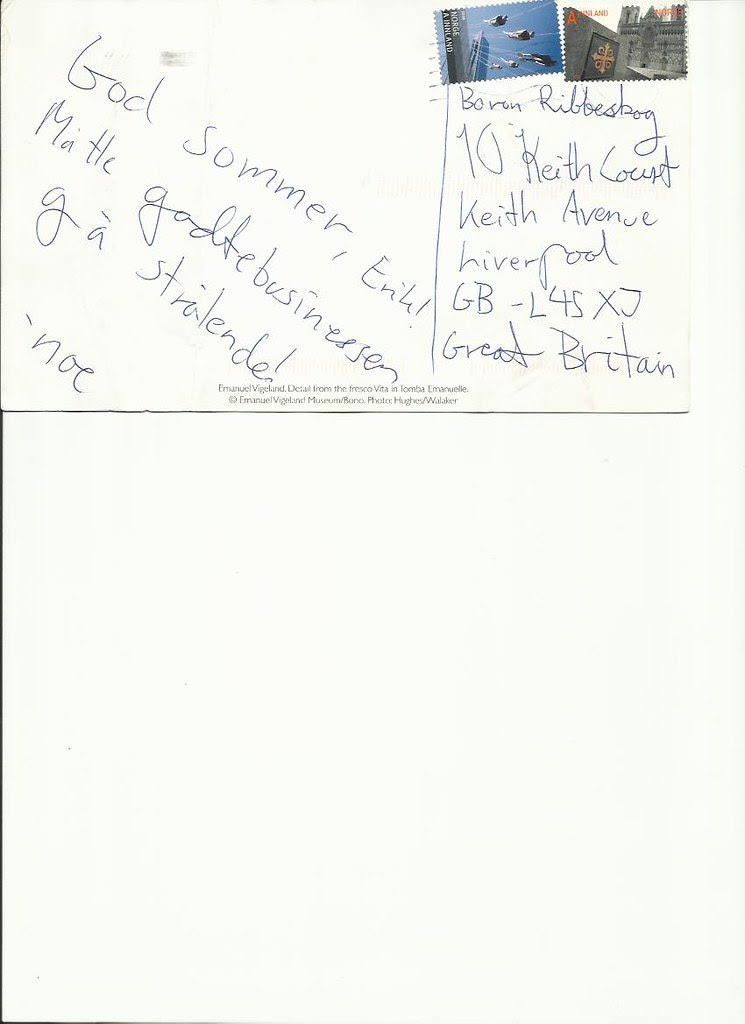 NORGE
A INNLAND
A INNLAND
NORGE
God sommer, Erik!
Måtte gadtebusinessen
gå strålende!
noe
Boron Ribbeskog
10 Keith Court
Keith Avenue
Liverpool
GB - L45 XJ
Great Britain
Emanuel Vigeland. Detail from the fresco Vita in Tomba Emanuelle.
© Emanuel Vigeland Museum/Bono. Photo: Hughes/Walaker